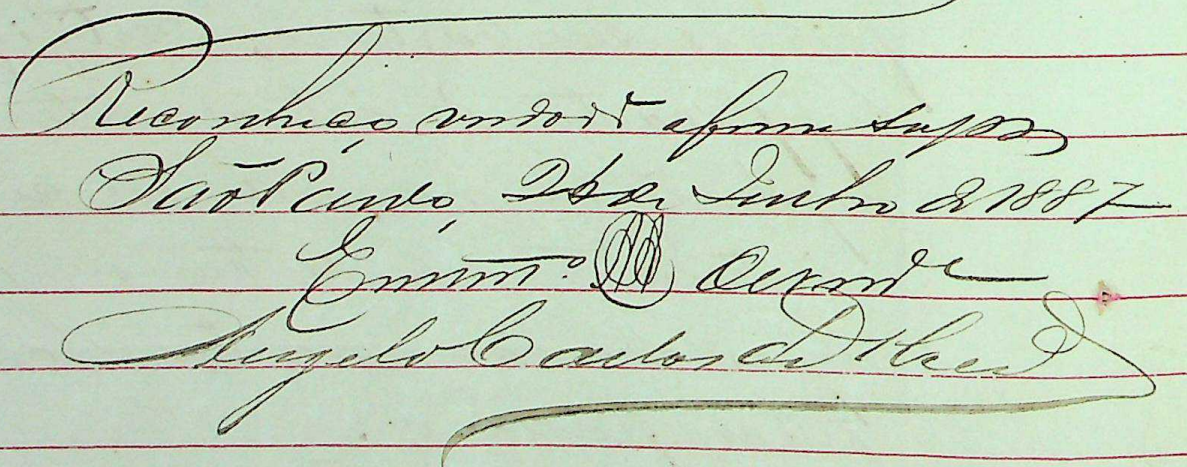 Reconheço verdadrª a firma supra
São Paulo, 26 de Junho d 1887
Em testº da verdade
Angelo Carlos de Abreu